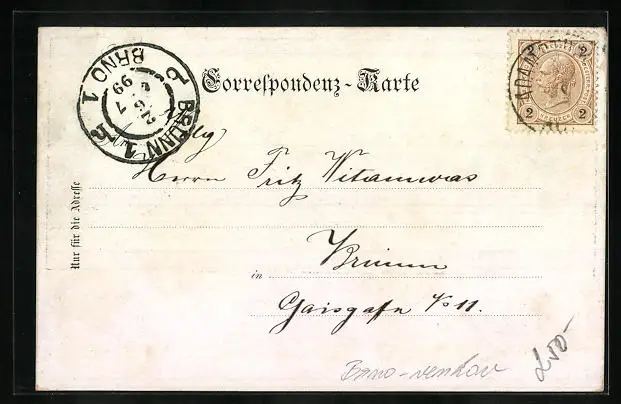 Correspondenz-Karte
BRÜNN 1
BRNO 1
26 7 99
2 2
ADAM
2 KREUZER 2
Herrn Fritz
Nur für die Adresse
in Brünn
Gaisgasse No 11.
Brno-venkov
250-